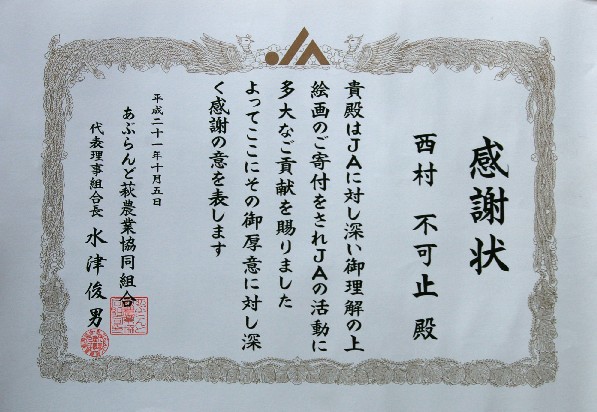 感謝状
西村 不可止 殿
貴殿はJAに対し深い御理解の上
絵画のご寄付をされJAの活動に
多大なご貢献を賜りました
よってここにその御厚意に対し深
く感謝の意を表します
平成二十一年十月五日
あぶらんど萩農業協同組合
代表理事組合長 水津俊男
JA